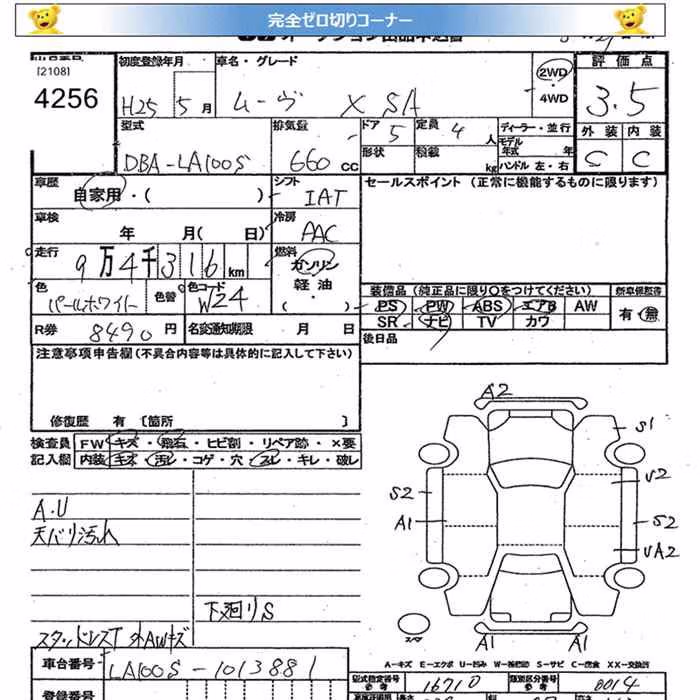 完全ゼロ切りコーナー
オークション出品申込書
[2108]
4256
初度登録年月 車名・グレード
H25 5月 ムーヴ X SA
2WD
・
4WD
評価点
3.5
外装 内装
C C
型式 排気量 ドア 定員 ディーラー・並行
DBA-LA100S 660 CC 5 4人
形状 積載 kg
モデル年式 年
ハンドル 左・右
車歴 シフト
自家用・( ) IAT
セールスポイント (正常に機能するものに限ります)
車検 冷房
年 月( 日) AAC
走行 燃料
9万4千316km ガソリン
軽油
・
( )
色 色替 色コード
パールホワイト W24
装備品(純正品に限り○をつけてください) 新車保証書
PS PW ABS エアB AW 有・無
SR ナビ TV カワ
R券 8490円 名変通知期限 月 日
後日品
注意事項申告欄(不具合内容等は具体的に記入して下さい)
修復歴 有 〔箇所 〕
検査員 FW キズ・飛石・ヒビ割・リペア跡・×要
記入欄 内装 キズ・汚レ・コゲ・穴・スレ・キレ・破レ
A・U
天バリ汚れ
下廻りS
スタッドレスT 外AWキズ
A2
S1
U2
S2
A1
S2
UA2
スペア
A1 A1
A-キズ E-エクボ U-凹み W-補修跡 S-サビ C-腐食 XX-交換済
車台番号 LA100S-1013881
型式指定番号 参考 16710 類別区分番号 参考 0014
登録番号